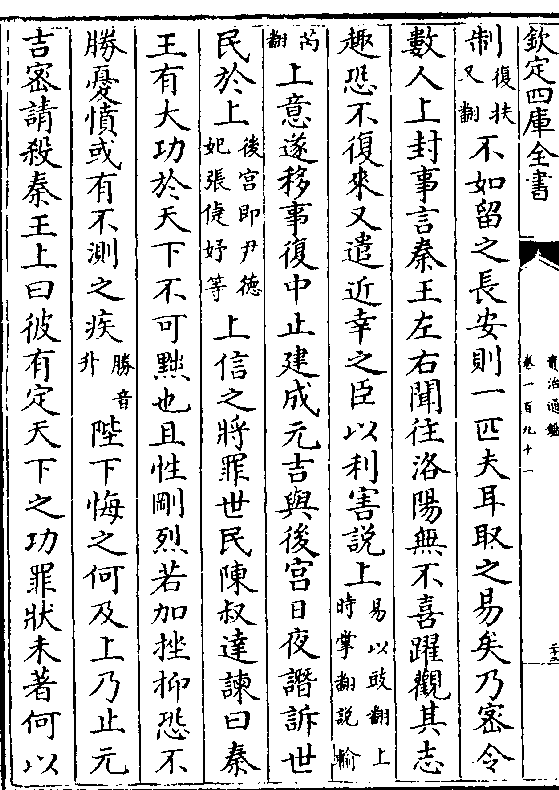 欽定四庫全書
資治通鑑
卷一百九十一
制復扶又翻不如留之長安則一匹夫耳取之易矣乃密令
數人上封事言秦王左右聞往洛陽無不喜躍觀其志
趣恐不復來又遣近幸之臣以利害説上易以豉翻上時掌翻説輸
芮翻上意遂移事復中止建成元吉與後宫日夜譖訴世
民於上後宫即尹德妃張倢妤等上信之將罪世民陳叔達諫曰秦
王有大功於天下不可黜也且性剛烈若加挫抑恐不
勝憂憤或有不測之疾勝音升陛下悔之何及上乃止元
吉密請殺秦王上曰彼有定天下之功罪狀未著何以